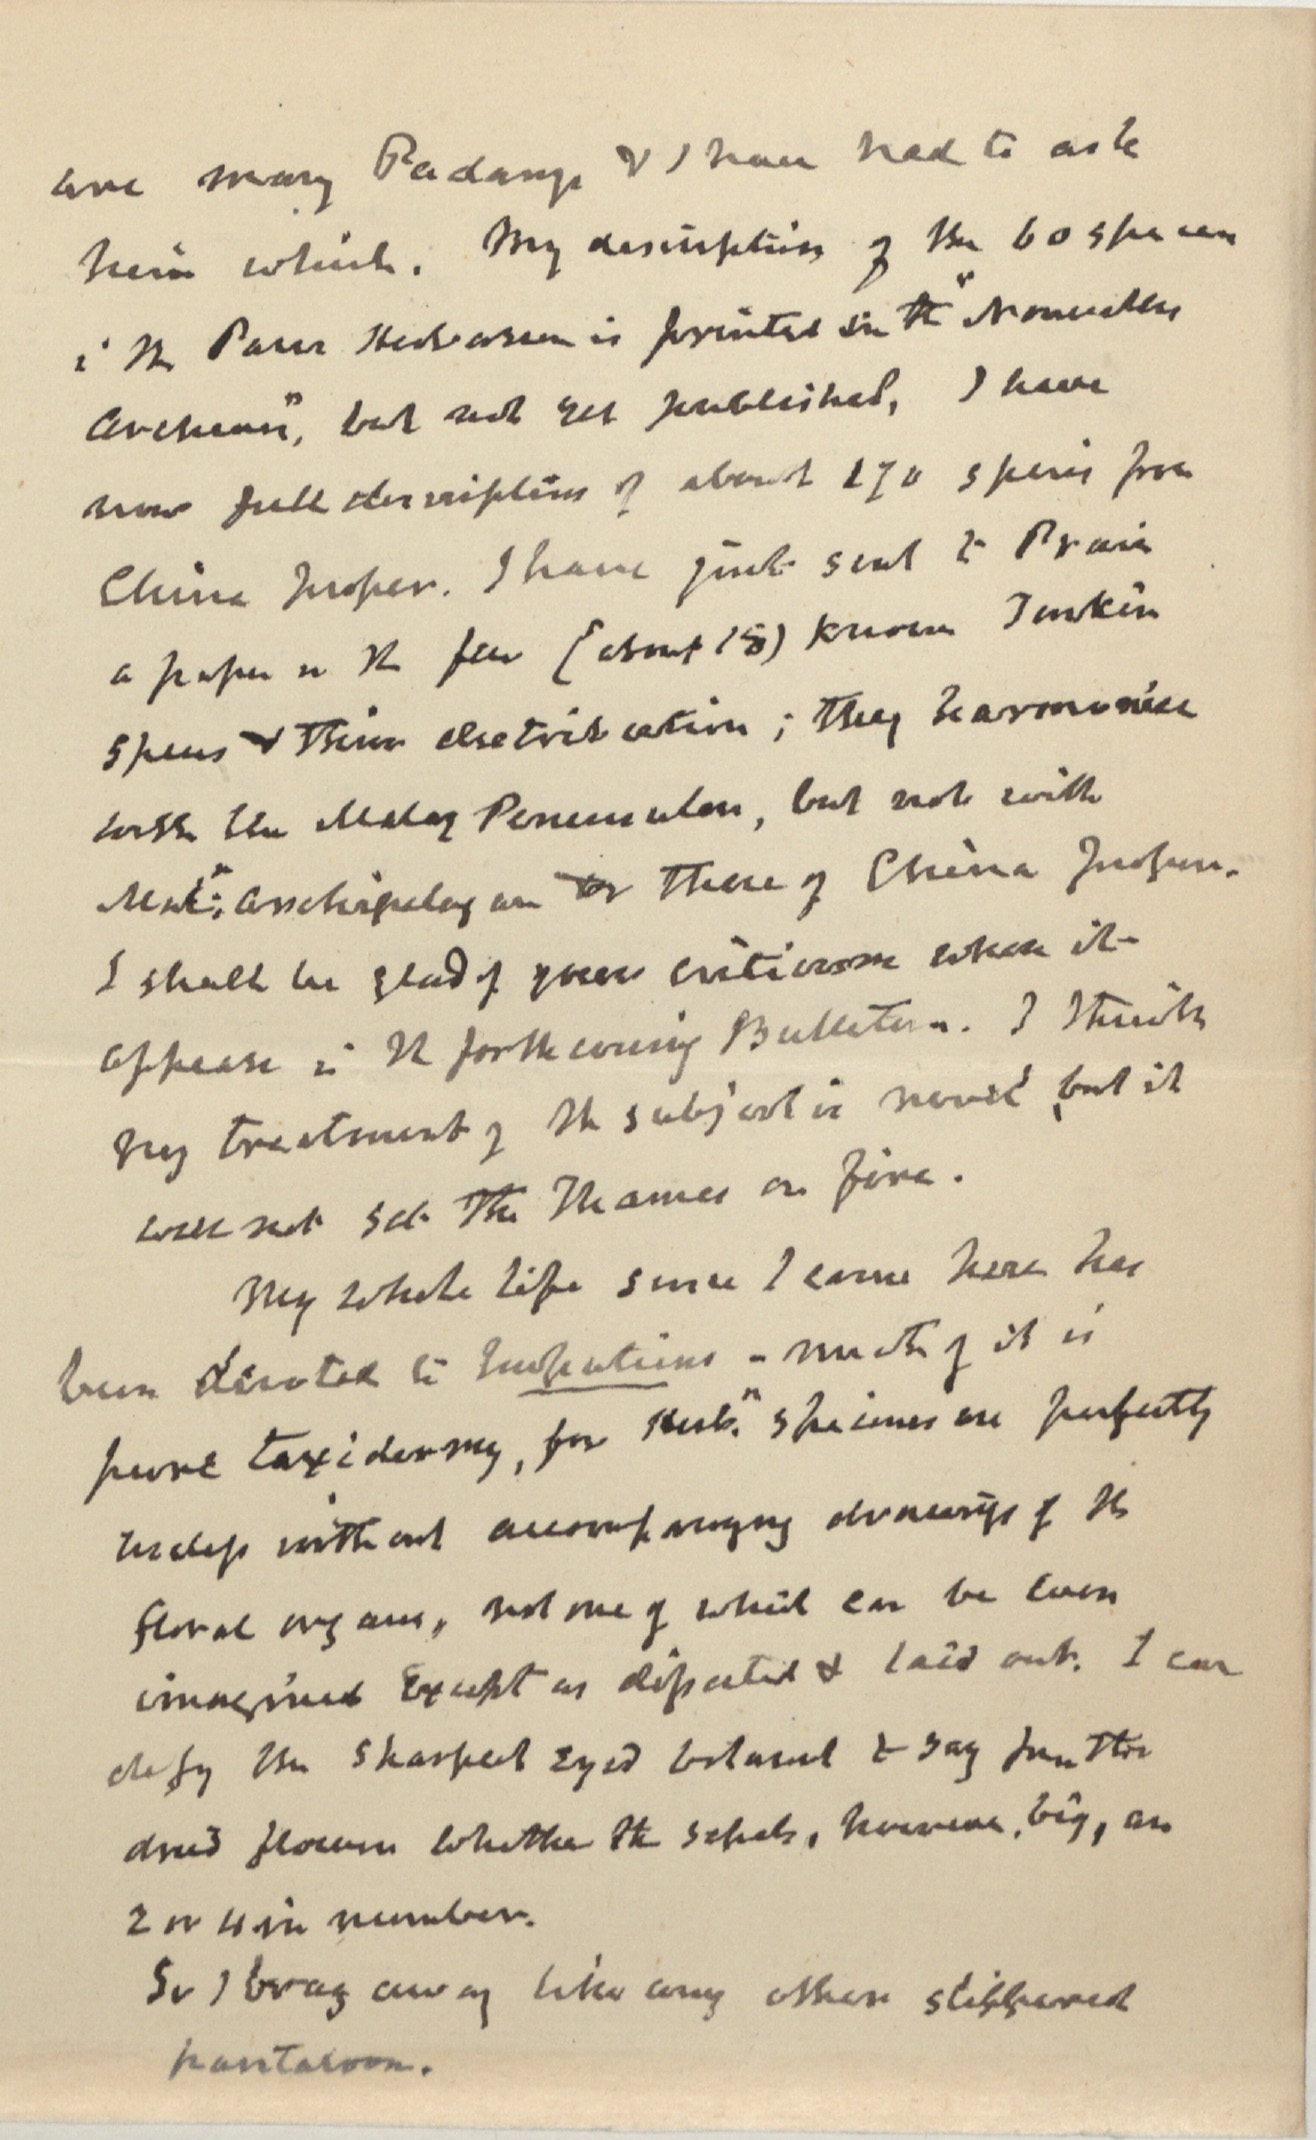 are many Padangs & I have had to ask
him which. My description of the 60 species
in the Paris Herbarium is printed in the "Nouvelles
Archives", but not yet published, I have
now full descriptions of about 170 species from
China proper. I have just sent to Prain
a paper on the few (about 18) known Tonkin
species & their distribution; they harmonise
with the Malay Peninsulan, but not with
Archipelagan or those of China proper.
I shall be glad of your criticism when it
appears in the forthcoming Bulletin. I think
my treatment of the subject is novel, but it
will not set the Thames on fire.
My whole life since I came here has
been devoted to Impatiens - much of it is
pure taxidermy, for Herb.m specimens are perfectly
useless without accompanying drawings of the
floral organs, not one of which can be even
imagined except as dissected & laid out. I can
defy the sharpest eyed botanist to say from the
dried flowers whether the sepals, however big, are
2 or 4 in number.
So I brag away like any other slippered
pantaloon.